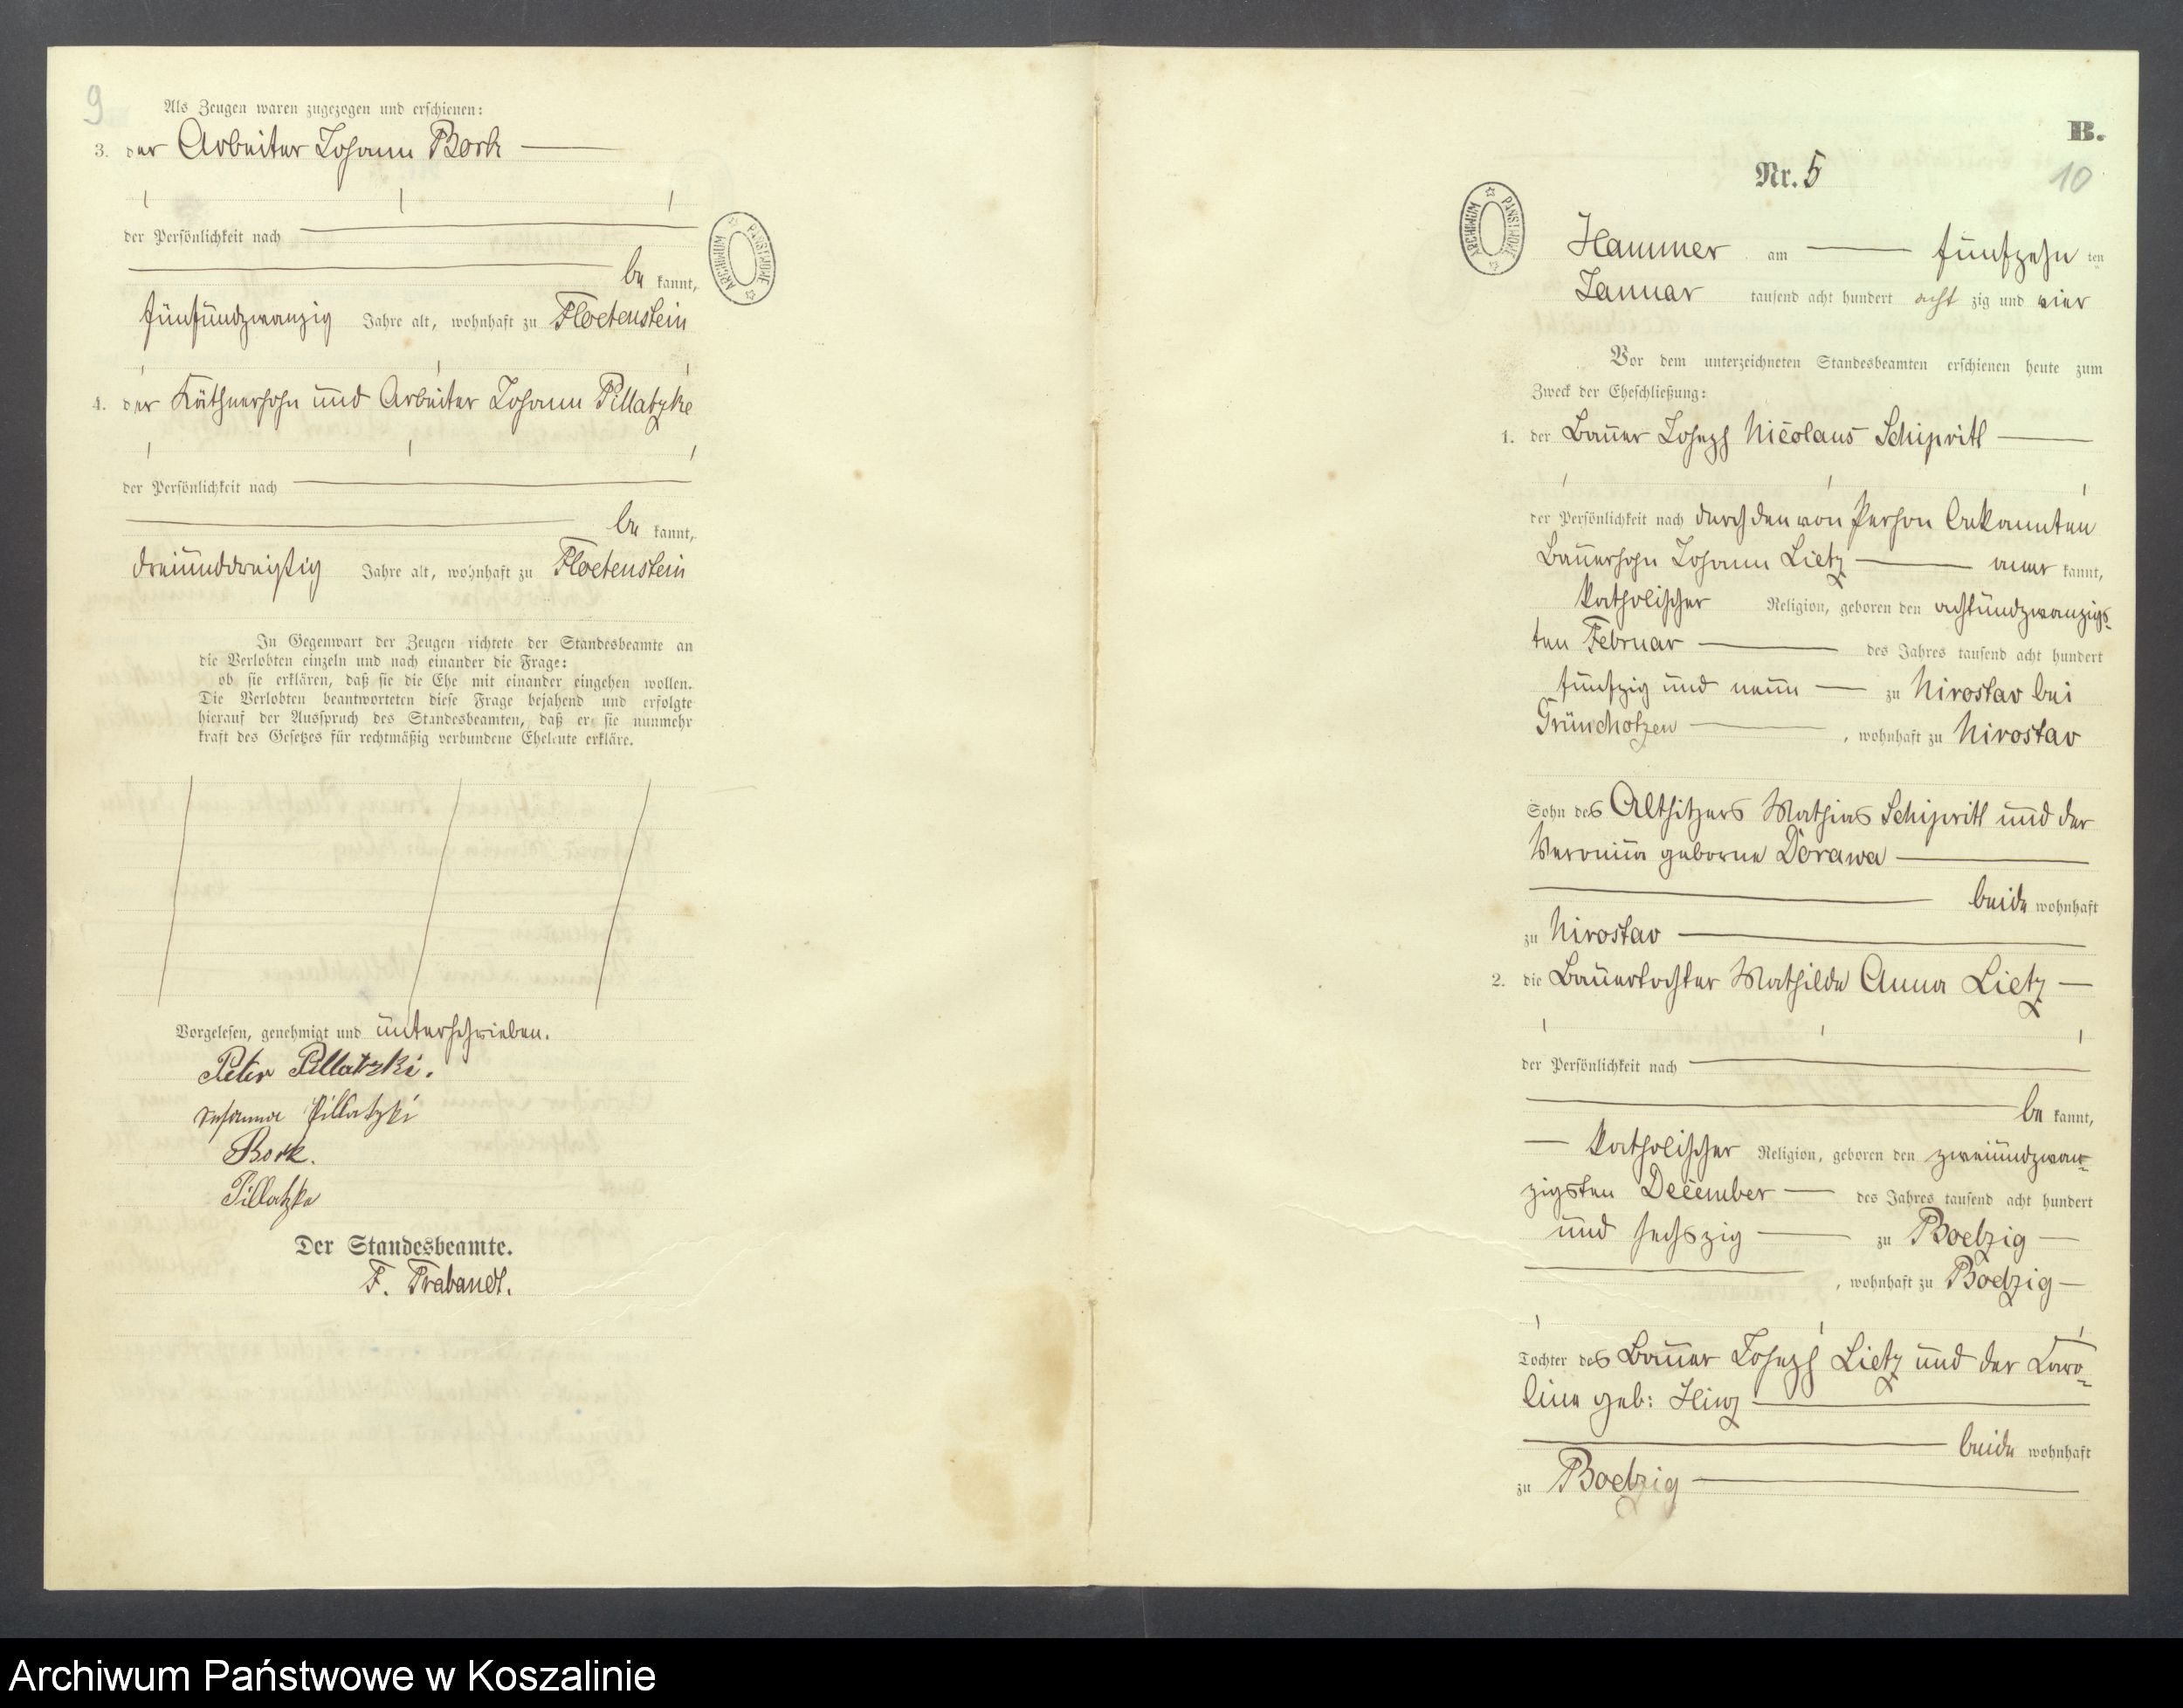 9
Als Zeugen waren zugezogen und erschienen:
3. der Arbeiter Johann Bork
der Persönlichkeit nach
be kannt,
fünfundzwanzig Jahre alt, wohnhaft zu Floetenstein
4. der Käthnersohn und Arbeiter Johann Pillatzke
der Persönlichkeit nach
be kannt,
dreiunddreißig Jahre alt, wohnhaft zu Floetenstein
In Gegenwart der Zeugen richtete der Standesbeamte an
die Verlobten einzeln und nach einander die Frage:
ob sie erklären, daß sie die Ehe mit einander eingehen wollen.
Die Verlobten beantworteten diese Frage bejahend und erfolgte
hierauf der Ausspruch des Standesbeamten, daß er sie nunmehr
kraft des Gesetzes für rechtmäßig verbundene Eheleute erkläre.
Vorgelesen, genehmigt und unterschrieben.
Peter Pillatzki.
Pillatzki
Bork.
Pillatzke
Der Standesbeamte.
F. Trabandt.
ARCHIWUM PAŃSTWOWE
B.
Nr. 5
10
ARCHIWUM PAŃSTWOWE
Hammer am fünfzehn ten
Januar tausend acht hundert acht zig und vier
Vor dem unterzeichneten Standesbeamten erschienen heute zum
Zweck der Eheschließung:
1. der Bauer Joseph Nicolaus Schipritt
der Persönlichkeit nach durch den von Person bekannten
Bauersohn Johann Lietz aner kannt,
katholischer Religion, geboren den achtundzwanzigs-
ten Februar des Jahres tausend acht hundert
fünfzig und neun zu Nirostav bei
Gründhotzen, wohnhaft zu Nirostav
Sohn des Altsitzers Mathias Schipritt und der
Veronica geborne Dorawa
beide wohnhaft
zu Nirostav
2. die Bauertochter Mathilde Anna Lietz
der Persönlichkeit nach
be kannt,
katholischer Religion, geboren den zweiundzwan-
zigsten December des Jahres tausend acht hundert
und sechszig zu Boelzig
, wohnhaft zu Boelzig
Tochter des Bauer Joseph Lietz und der Caro-
line geb: Hinz
beide wohnhaft
zu Boelzig
Archiwum Państwowe w Koszalinie